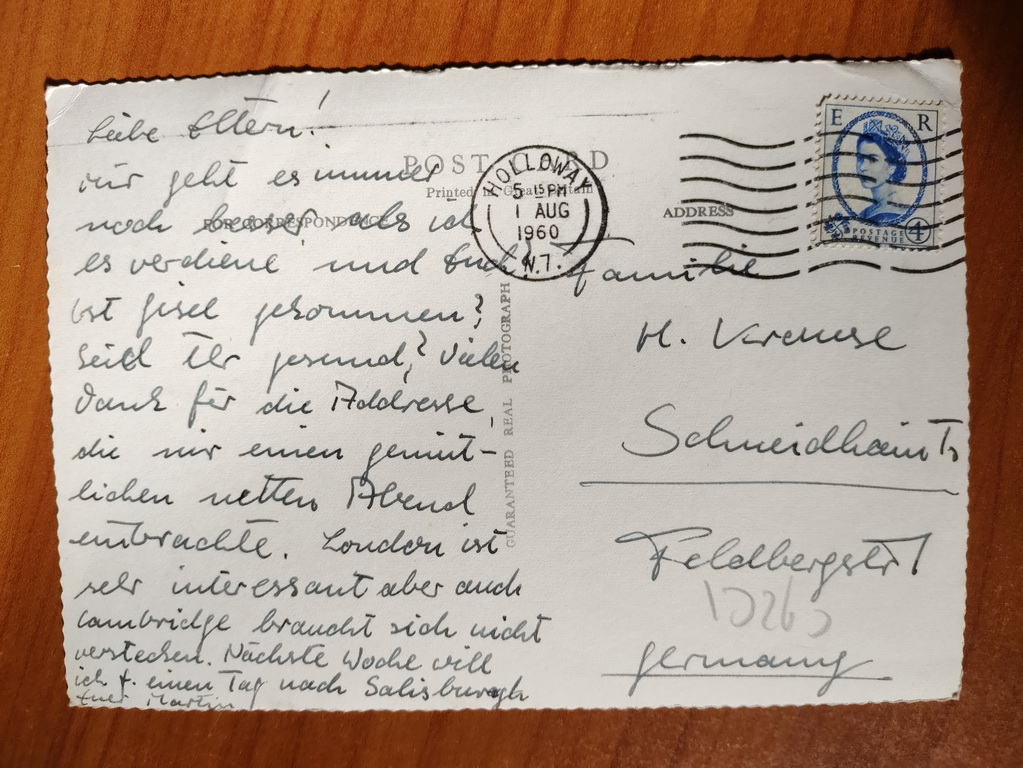 Liebe Eltern!
mir geht es immer
noch besser als ich
es verdiene und Euch?
Ist Gisel gekommen?
Seid Ihr gesund? Vielen
Dank für die Addresse,
die mir einen gemüt-
lichen netten Abend
einbrachte. London ist
sehr interessant aber auch
Cambridge braucht sich nicht
verstecken. Nächste Woche will
ich f. einen Tag nach Salisburgh
Euer Martin
POST CARD
Printed in Great Britain
FOR CORRESPONDENCE
ADDRESS
GUARANTEED REAL PHOTOGRAPH
HOLLOWAY
5 15 PM
1 AUG
1960
N.7.
E R
POSTAGE
REVENUE
4D
Familie
H.
Schneidhain Ts
Feldbergstr 1
Germany